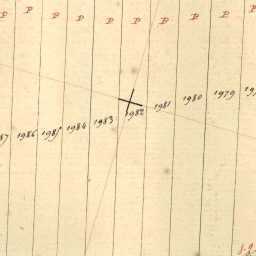 P P P P P P P P P P
1986 1985 1984 1983 1982 1981 1980 1979